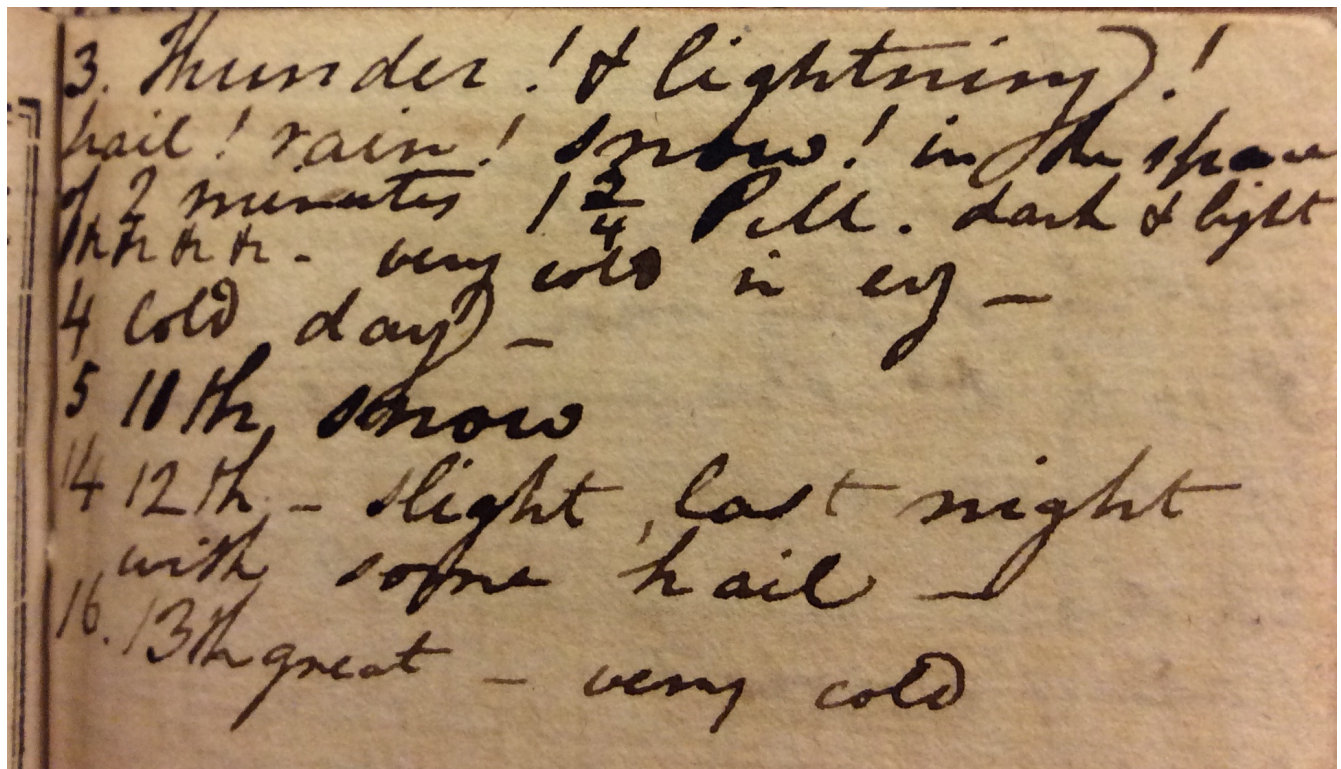 3. Thunder! & lightning!
hail! rain! snow! in the space
of 2 minutes 1 2/4 Pell. dark & light
very cold in ey —
4 Cold day —
5 11th snow
14 12th — slight, last night
with some hail —
16. 13th great — very cold